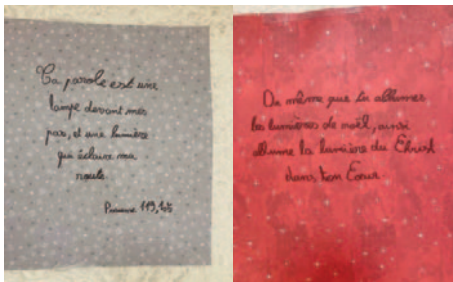 Ta parole est une
lampe devant mes
pas, et une lumière
qui éclaire ma
route.
Psaume 119,105
De même que tu allumes
les lumières de noël, ainsi
allume la lumière du Christ
dans ton Coeur